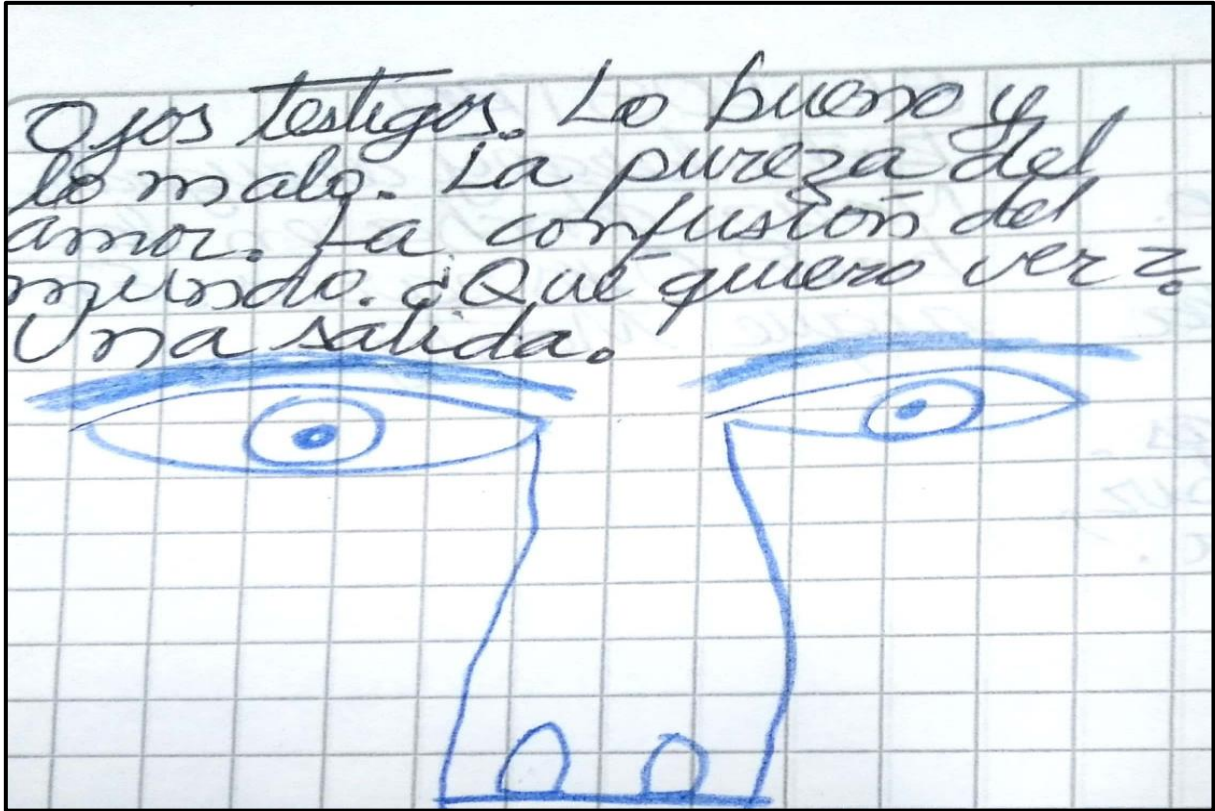 Ojos testigos. Lo bueno y
lo malo. La pureza del
amor. La confusión del
mundo. ¿Qué quiero ver?
Una salida.